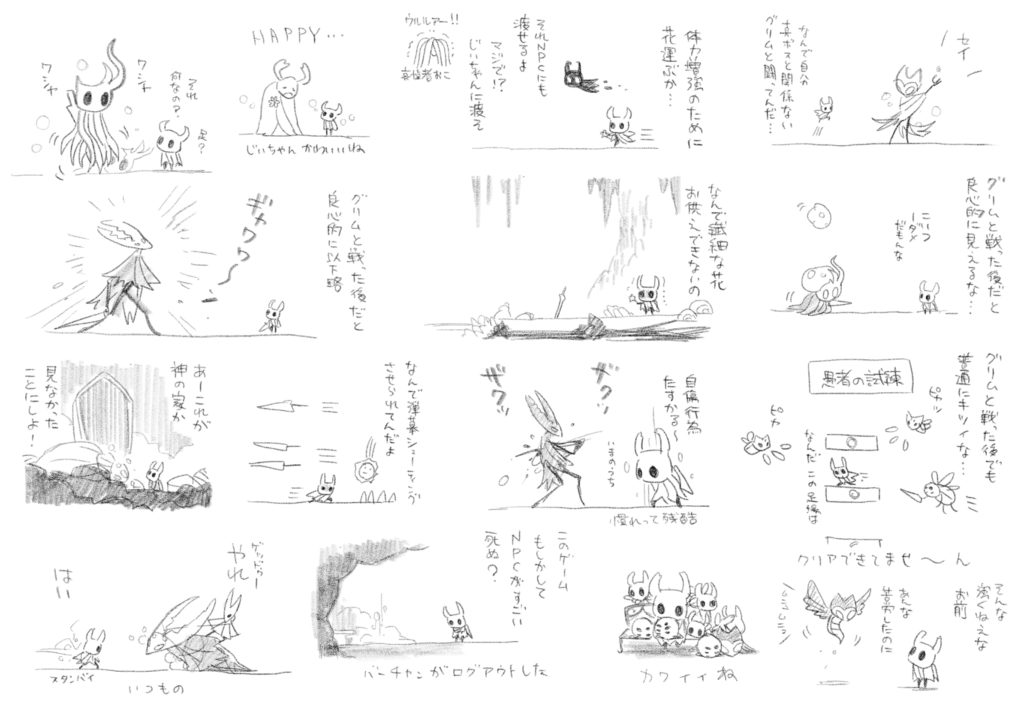 セイ
なんで自分
真ボスと関係ない
グリムと闘ってんだ…
体力増強のために
花運ぶか…
それNPCにも
渡せるよ
マジで!?
じいちゃんに渡そ
ウルルァー!!
哀悼者おこ
HAPPY…
じいちゃん かわいいね
ワシャ
ワシャ
それ
何なの?
足?
グリムと戦った後だと
良心的に見えるな…
こいつ
1ダメ
だもんな
なんで繊細な花
お供えできないの
グリムと戦った後だと
良心的に以下略
ギャワワ〜
グリムと戦った後でも
普通にキツイな…
愚者の試練
ピカッ
ピカ
なんだ この足場は
クリアできてませ〜ん
自傷行為
たすかる〜
いまのうち
ザクッ
ザクッ
慣れって残酷
なんで弾幕シューティング
させられてんだよ
あーこれが
神の家か
見なかった
ことにしよ!
そんな
強くねえな
お前
あんな
苦労したのに
カワイイね
このゲーム
もしかして
NPCがすごい
死ぬ?
バーチャンがログアウトした
やれ
はい
スタンバイ
いつもの